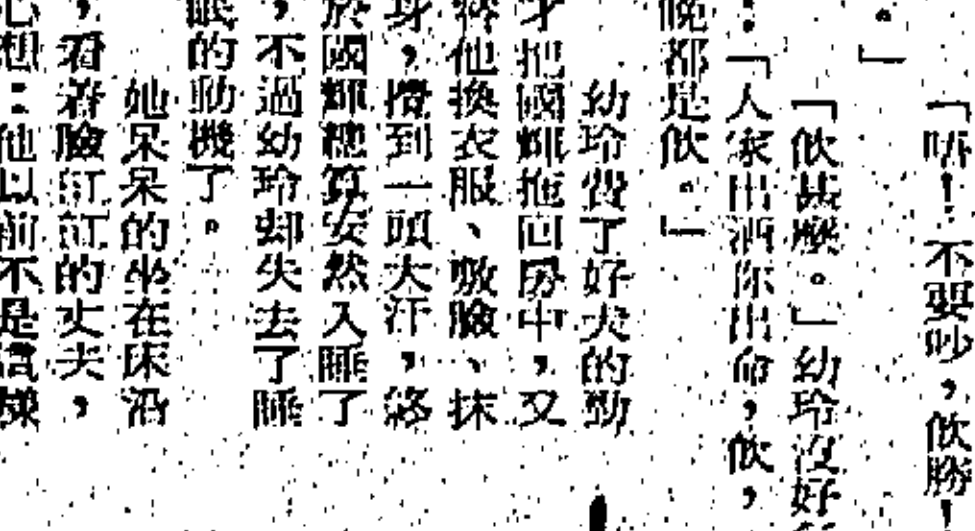 「唔！不要吵，飲勝！
。」
「飲甚麼。」幼玲沒好
：「人家出酒你出命，飲，
晚都是飲。」
幼玲費了好大的勁
才把國輝拖回房中，又
替他換衣服、敷臉、抹
身，攪到一頭大汗，終
於國輝總算安然入睡了
，不過幼玲卻失去了睡
眠的動機了。
她呆呆的坐在床沿
，看着臉紅紅的丈夫，
心想：他以前不是這樣